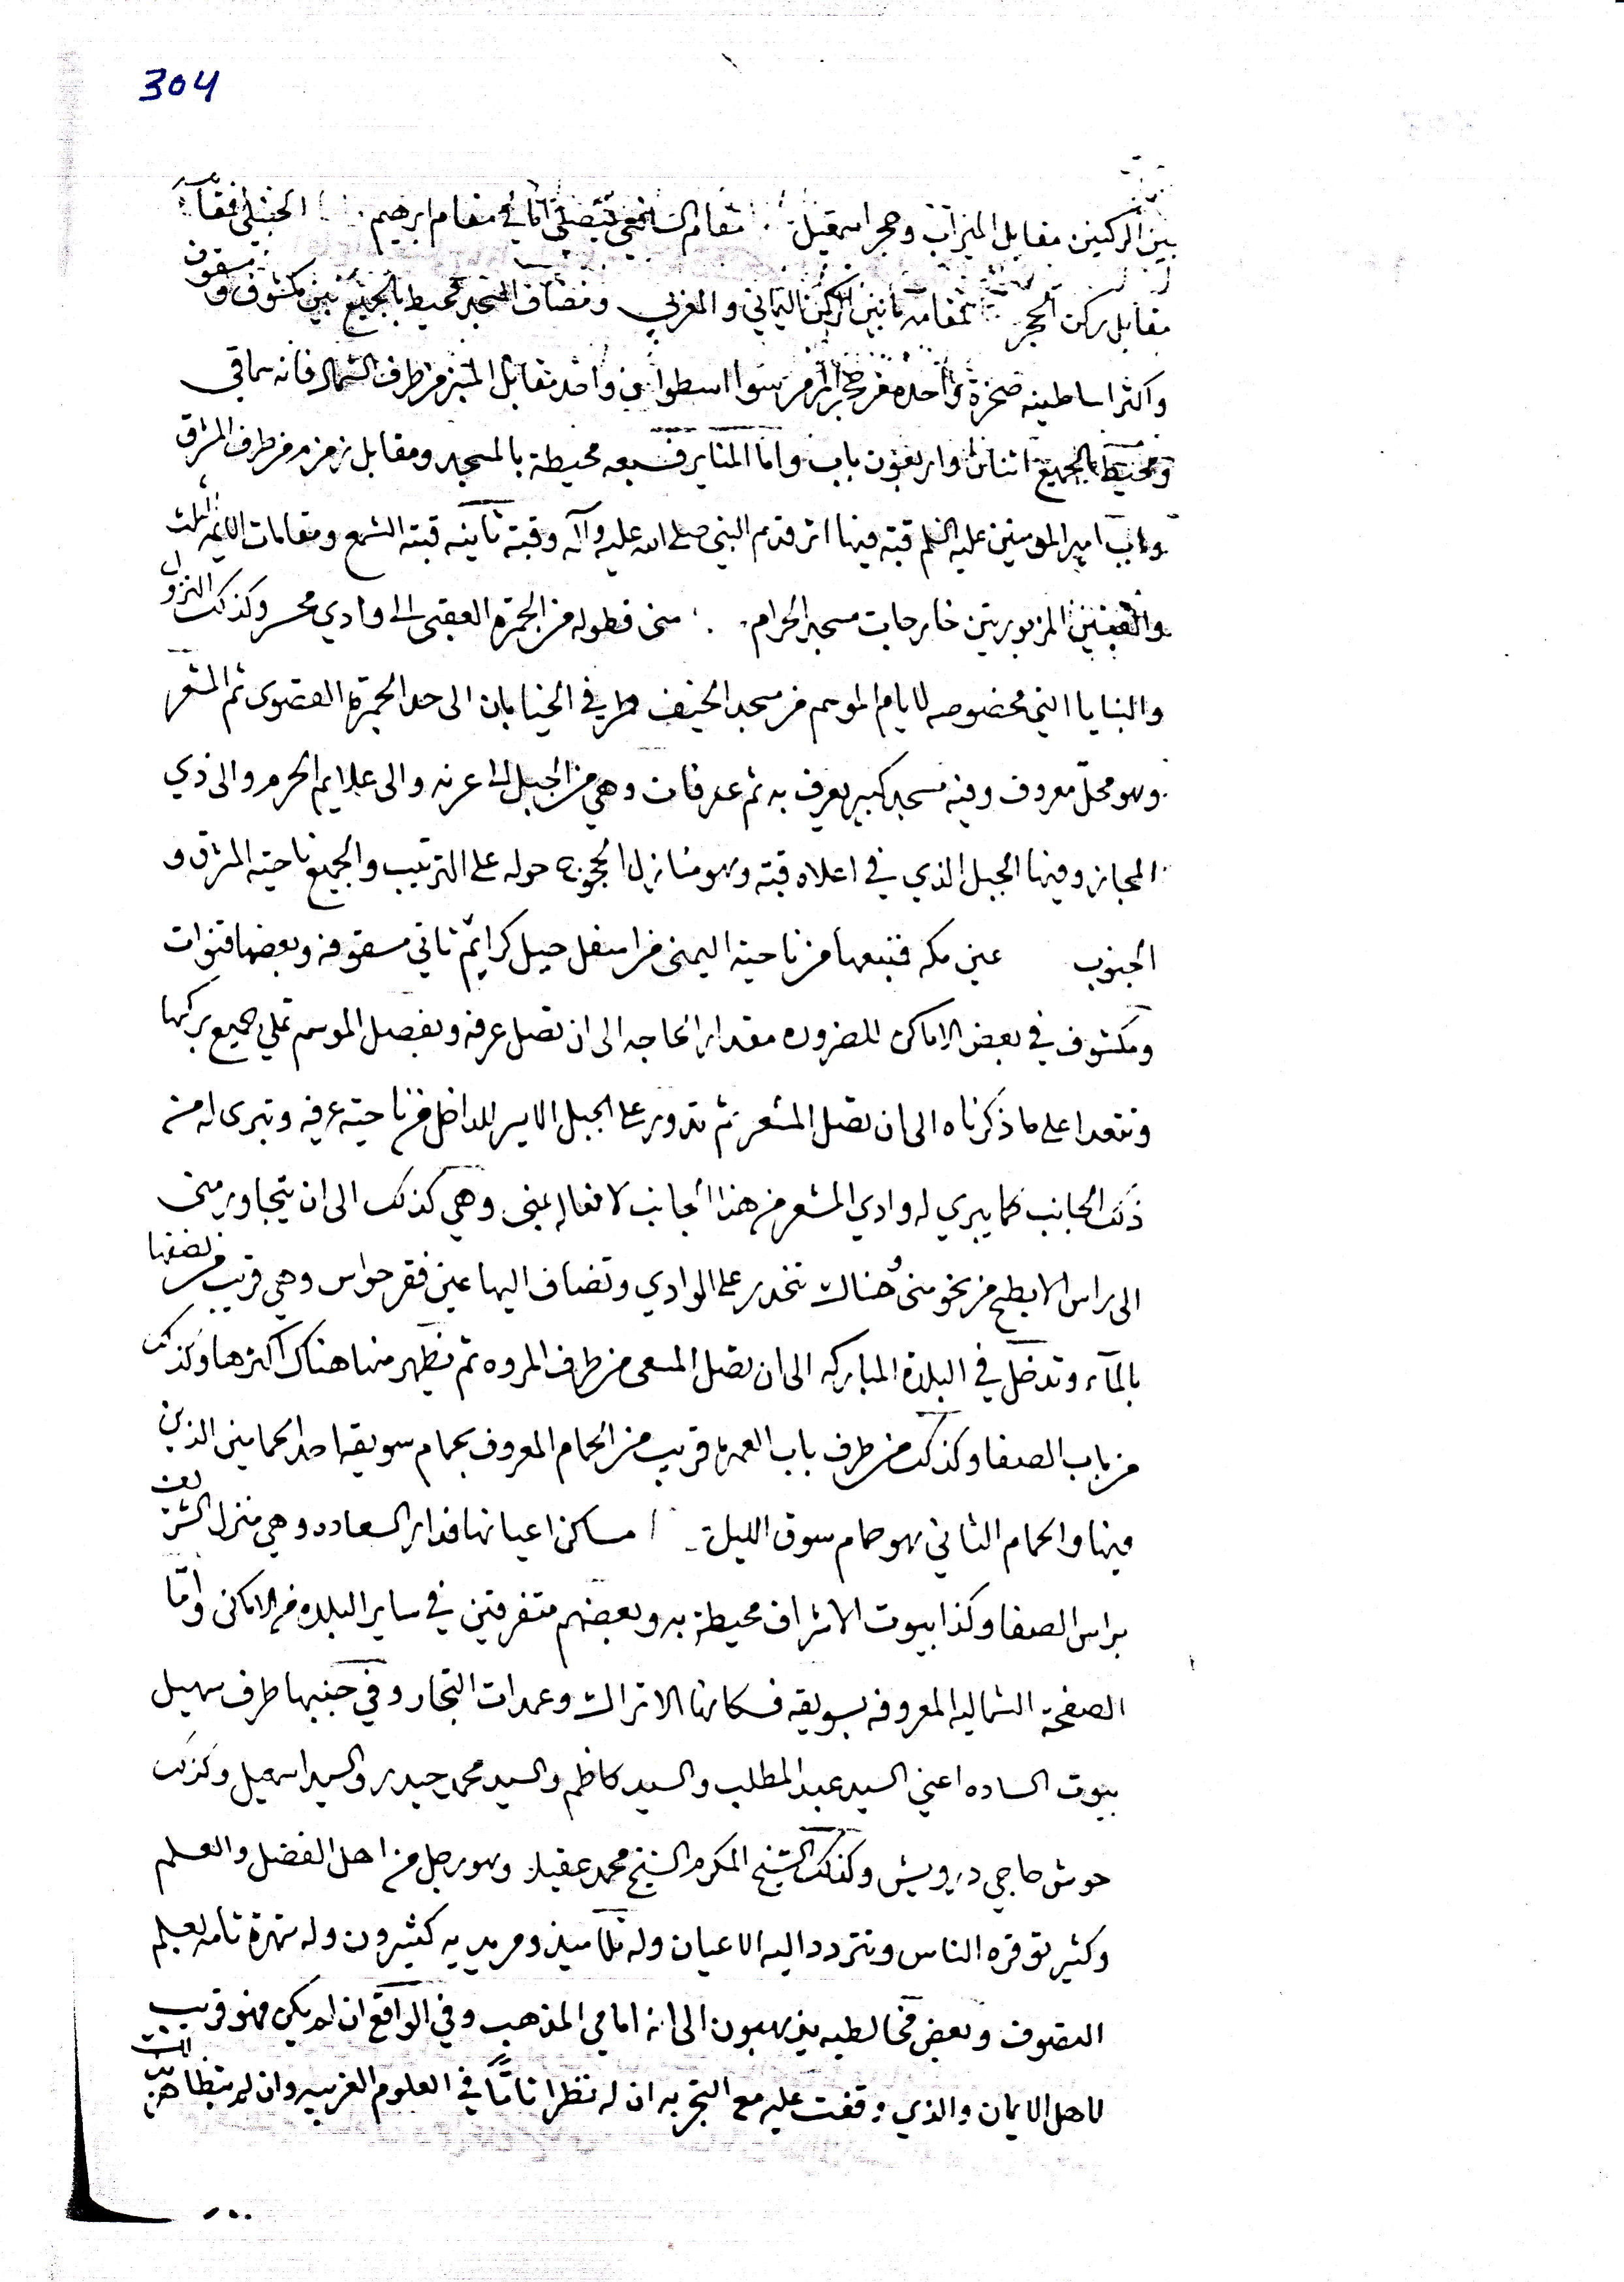 304
بين الركنين مقابل الميزاب وحجر اسمعيل مقام الشافعي فيصلي اما في مقام ابرهيم الحنبلي فمقا
مقابل ركن الحجر مقامه ما بين الركن اليماني والغربي ومضاف المسجد محيط بالجميع بين مكشوف ومسقوف
واكثر اساطينه صخرة واحده من حجر المرمر سوا اسطوانين واحد مقابل المنبر من طرف الشمال فانه سماقي
ومحيط بالجميع اثنان واربعون باب واما المناير فسبعه محيطة بالمسجد ومقابل زمزم من طرف المشرق
وباب امير المومنين عليه السلم قبته فيها اثر قدم النبي صلى الله عليه وآله وقبته ثانيه قبته الشمع ومقامات الايمه الثلث
والقبتين المزبورتين خارجات مسجد الحرام منى فطوله من الجمرة العقبى الى وادي محسر وكذلك النزول
والبنايا التي مخصوصه لايام الموسم من مسجد الخيف وطرفي الخيابان الى حد الجمرة القصوى ثم المشعر
وهو محل معروف وفيه مسجد كبير يعرف به ثم عرفات وهي من الجبل الى عرنه والى علايم الحرم والى ذي
المجاز وفيها الجبل الذي في اعلاه قبته وهو منازل الحجوج حوله على الترتيب والجميع ناحية المشرق و
الجنوب عين مكه فنبعها من ناحية اليمنى من اسفل جبل كرا ثم تاتي مسقوفه وبعضها قنوات
ومكشوف في بعض الاماكن للضروره مقدار الحاجه الى ان تصل عرفه وبفصل الموسم تملي جميع بركها
وتتعدا على ما ذكرناه الى ان تصل المشعر ثم تدور على الجبل الايسر للداخل من ناحية عرفه وتبرى له من
ذلك الجانب كما يبري له وادي المشعر من هذا الجانب لا فعاله بمنى وهي كذلك الى ان يتجاوز منى
الى راس الابطح من نحو منى وهناك تنحدر على الوادي وتضاف اليها عين فقر حواس وهي قريب من نصفها
بالماء وتدخل في البلدة المباركه الى ان تصل المسعى من طرف المروه ثم تظهر منها هناك اكثرها وكذلك
من باب الصفا وكذلك من طرف باب العمره قريب من الحمام المعروف بحمام سويقه احد الحمامين الذين
فيها والحمام الثاني هو حمام سوق الليل مساكن اعيانها فدار السعاده وهي منزل الشريف
براس الصفا وكذا بيوت الاشراف محيطة به وبعضهم متفرقين في ساير البلده من الاماكن واما
الصفحة الشماليه المعروفه بسويقه فسكانها الاتراك وعمدات التجار وفي جنبها طرف سهيل
بيوت الساده اعني السيد عبد المطلب والسيد كاظم والسيد محمد حيدر والسيد اسمعيل وكذلك
حوش حاجي درويش وكذلك الشيخ المكرم الشيخ محمد عقيله وهو رجل من اهل الفضل والعلم
وكثير توقره الناس وتتردد اليه الاعيان وله تلاميذ ومريديه كثيرون وله شهرة تامه بعلم
التصوف وبعض مخالطيه يذهبون الى انه امامي المذهب وفي الواقع ان لم يكن فهو قريب
لاهل الايمان والذي وقفت عليه مع التجربه ان له نظرا تاما في العلوم الغريبه وان لم يتظاهر